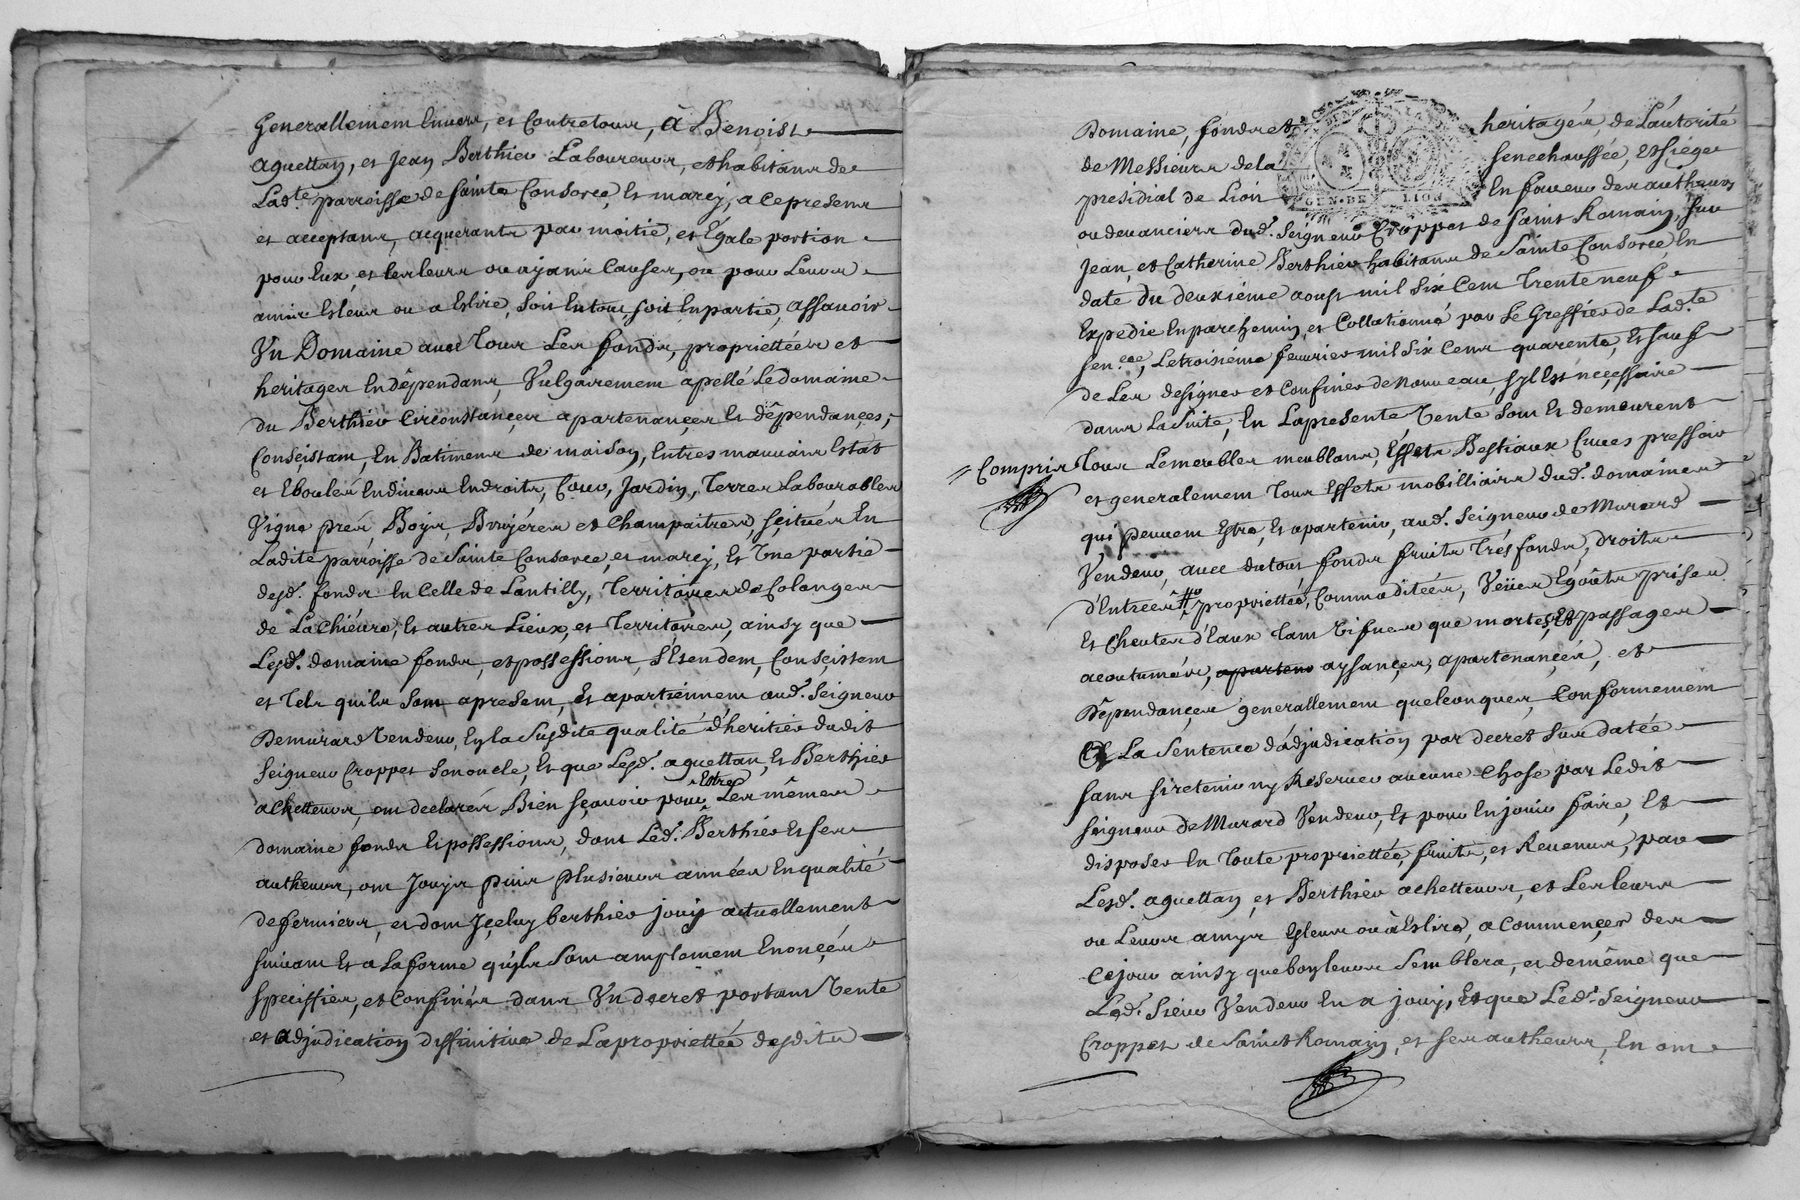 Generallement Envers, et Contretous, A Benoist
aguettan, et Jean Berthier Laboureurs, et habitans de
Lad.te parroisse de Sainte Consorce, Et marcy, a ce presens
et acceptans, acquerants par moitié, et Egale portion
pour Eux, et les leurs ou ayans Causes, ou pour Leurs
amis Esleus ou a Eslire, soit En tout, soit En partie, assavoir
Un Domaine avec Tous Les fonds, propriettées et
heritages En dêpendans, Vulgairement apellé Le domaine
du Berthier Circonstances apartenances Et dêpendançes,
Consçistant, En Batimens de maison, En tres mauvais Estat
et Eboulés En divers Endroits, Cour, Jardin, Terres Labourables
Vigne prés, Boys, Bruyéres et Champaitres, sçitués En
Ladite parroisse de Sainte Consorce, et marcy, Et Une partie
desd. fonds En Celle de Lantilly, Territoires de Colanges
de La Chiévre, Et autres Lieux, et Territoires, ainsy que
Lesd. domaine fonds, et possessions, s'Etendent, Consçistent
et Tels quils sont apresent, Et apartiennent aud. Seigneur
De murard Vendeur, En la Susdite qualité d'heritier dudit
Seigneur Croppet son oncle, Et que Lesd. aguettan, Et Berthier
Estre
achetteurs, ont declarés Bien sçavoir pour Les mêmes
domaine fonds Et possessions, dont Led. Berthier Et ses
autheurs, ont Jouys puis plusieurs années En qualité
de fermiers, et dont Jçeluy berthier jouit actuellement
suivant Et a La forme quyls sont amplement Enonçés
speciffies, et Confinés dans Un decret portant Vente
et adjudication diffinitive de La propriettée desdits
Domaine, fonds et heritages, de L'autorité
de Messieurs de la Senechaussée, Et siege
presidial de Lion En faveur des autheurs
GEN. DE LION
ou devanciers dud. Seigneur Croppet de Saint Romain, sur
Jean, et Catherine Berthier habitans de Sainte Consorce, En
date du deuxiéme aoust mil six Cent Trente neuf
Expedié En parchemin, et Collationné par Le Greffier de Lad.te
Sen.ée, Le troisieme fevrier mil six Cens quarente, Et sauf
de Les designer et Confiner de Nouveau, syl Est néçessaire
dans La Suite, En La presente Vente sont Et demeurent
Compris Tous Les meubles meublans, Effets Bestiaux Cuves pressoir
et generalement Tous Effets mobilliairs dud. domaine
qui peuvent Estre, Et apartenir, aud. Seigneur de Murard
Vendeur, avec du tout fonds fruits Trés fonds, droits
d'Entrées propriettés, Commoditées, Veües Egoûts prises
Et Cheutes d'Eaux Tant Vifves que mortes, Et passages
acoutumées, aparten aysançes, apartenançes, et
Dêpendançes générallement quelconques, Conformement
a La Sentence d'adjudication par decret sus datée
sans si retenir ny Reserver aucune Chose par Ledit
Seigneur de Murard Vendeur, Et pour En jouir faire, Et
disposer En Toute propriettée, fruits, et Revenus, par
Lesd. aguettan, et Berthier achetteurs, et Les leurs
ou Leurs amys Esleus ou à Eslire, a Commençer des
Cejour ainsy que bon leurs semblera, et de même que
Led. Sieur Vendeur En a jouy, Et que Led. Seigneur
Croppet de Saint Romain, et ses autheurs, En ont